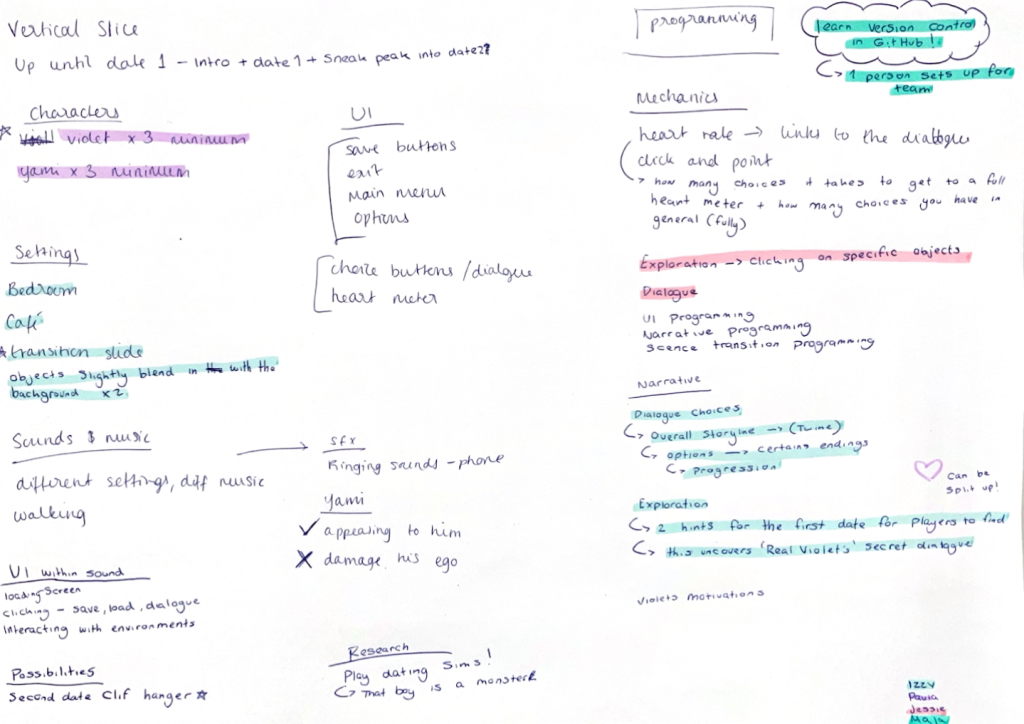 Vertical Slice
Up until date 1 - Intro + date 1 + Sneak peak into date2??
Characters
violet x 3 minimum
yami x 3 minimum
Settings
Bedroom
Café
transition slide
objects slightly blend in the with the
background x2
Sounds & music
different settings, diff music
walking
UI within sound
loading screen
Cliching - save, load, dialogue
Interacting with environments
Possibilities
Second date Clif hanger
UI
save buttons
exit
Main menu
options
choice buttons / dialogue
heart meter
sfx
Ringing sounds - phone
Yami
appealing to him
damage his ego
Research
Play dating sims!
That boy is a monster
programming
learn version control
in GitHub!
1 person sets up for
team
Mechanics
heart rate → links to the dialogue
click and point
how many choices it takes to get to a full
heart meter + how many choices you have in
general (fully)
Exploration → Clicking on specific objects
Dialogue
UI Programming
Narrative programming
Scence transition programming
Narrative
Dialogue Choices
Overall Storyline → (Twine)
options → Certains endings
Progression
can be
split up!
Exploration
2 hints for the first date for players to find
this uncovers 'Real Violet's' secret dialogue
Violets motivations
Izzy
Paula
Jessie
Maja